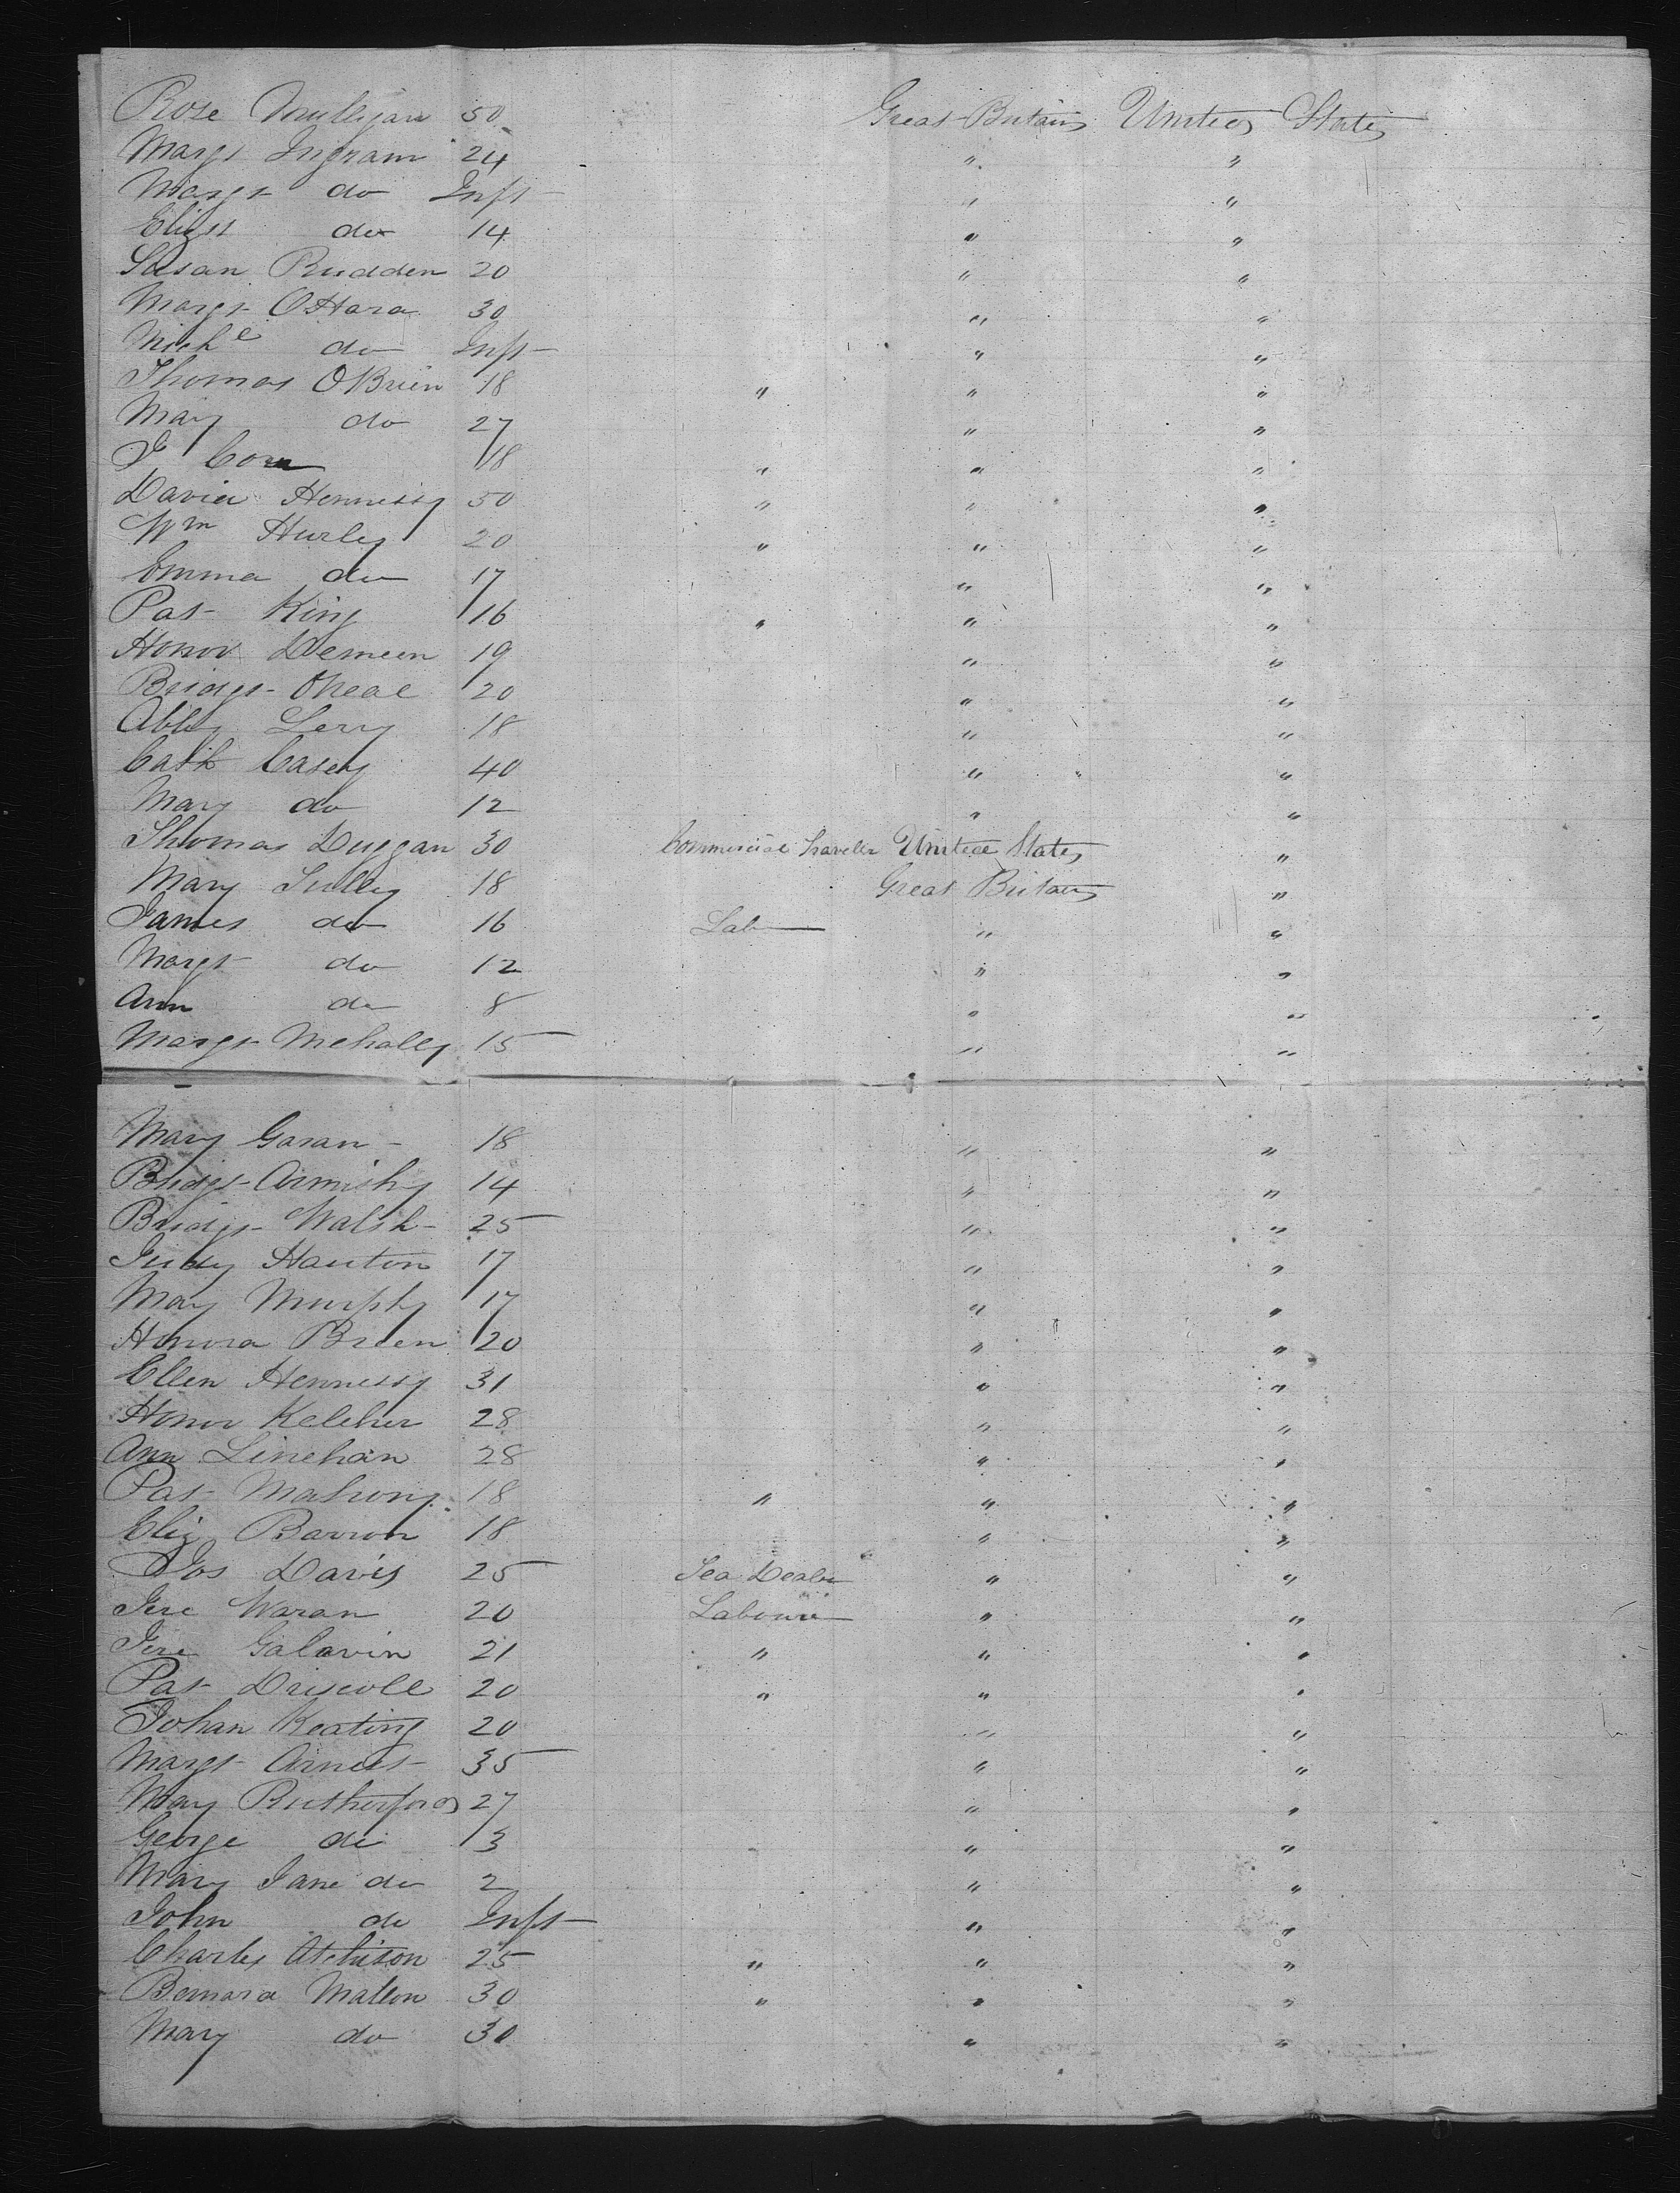 Rose Mulligan 50 Great Britain United States
Margt Ingram 24 " "
Margt do Inft " "
Elizth do 14 " "
Susan Rudden 20 " "
Margt OHara 30 " "
Michl do Inft " "
Thomas OBrien 18 " " "
Mary do 27 " "
J Corn 18 " " "
David Hennessy 50 " " "
Wm Hurley 20 " " "
Emma do 17 " "
Pat King 16 " " "
Honor Demeen 19 " "
Bridgt ONeal 20 " "
Abby Lery 18 " "
Cath Casey 40 " "
Mary do 12 " "
Thomas Duggan 30 Commercial Traveller United States "
Mary Sulley 18 Great Britain "
James do 16 Lab " "
Margt do 12 " "
Ann do 8 " "
Margt Mehally 15 " "
Mary Garan 18 " "
Bridgt Armishy 14 " "
Bridgt Walsh 25 " "
Judy Hauton 17 " "
Mary Murphy 17 " "
Honora Breen 20 " "
Ellen Hennessy 31 " "
Honor Keleher 28 " "
Ann Linehan 28 " "
Pat Mahony 18 " " "
Eliz Barron 18 " "
Jos Davis 25 Tea Dealer " "
Jere Waran 20 Labourer " "
Jere Galavin 21 " " "
Pat Driscoll 20 " " "
Johan Keating 20 " "
Margt 35 " "
Mary Rutherford 27 " "
George do 3 " "
Mary Jane do 2 " "
John do Inft " "
Charles Atchison 25 " " "
Bernard Mallon 30 " " "
Mary do 30 " "